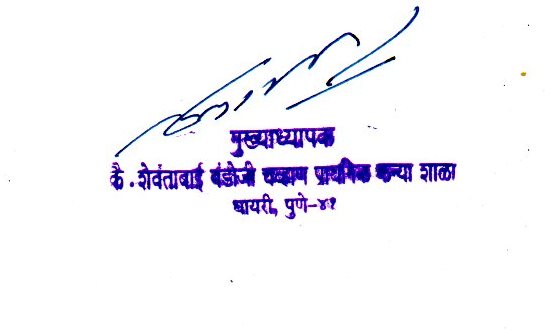 मुख्याध्यापक
कै. शेवंताबाई बंडोजी चव्हाण प्राथमिक कन्या शाळा
धायरी, पुणे-४१